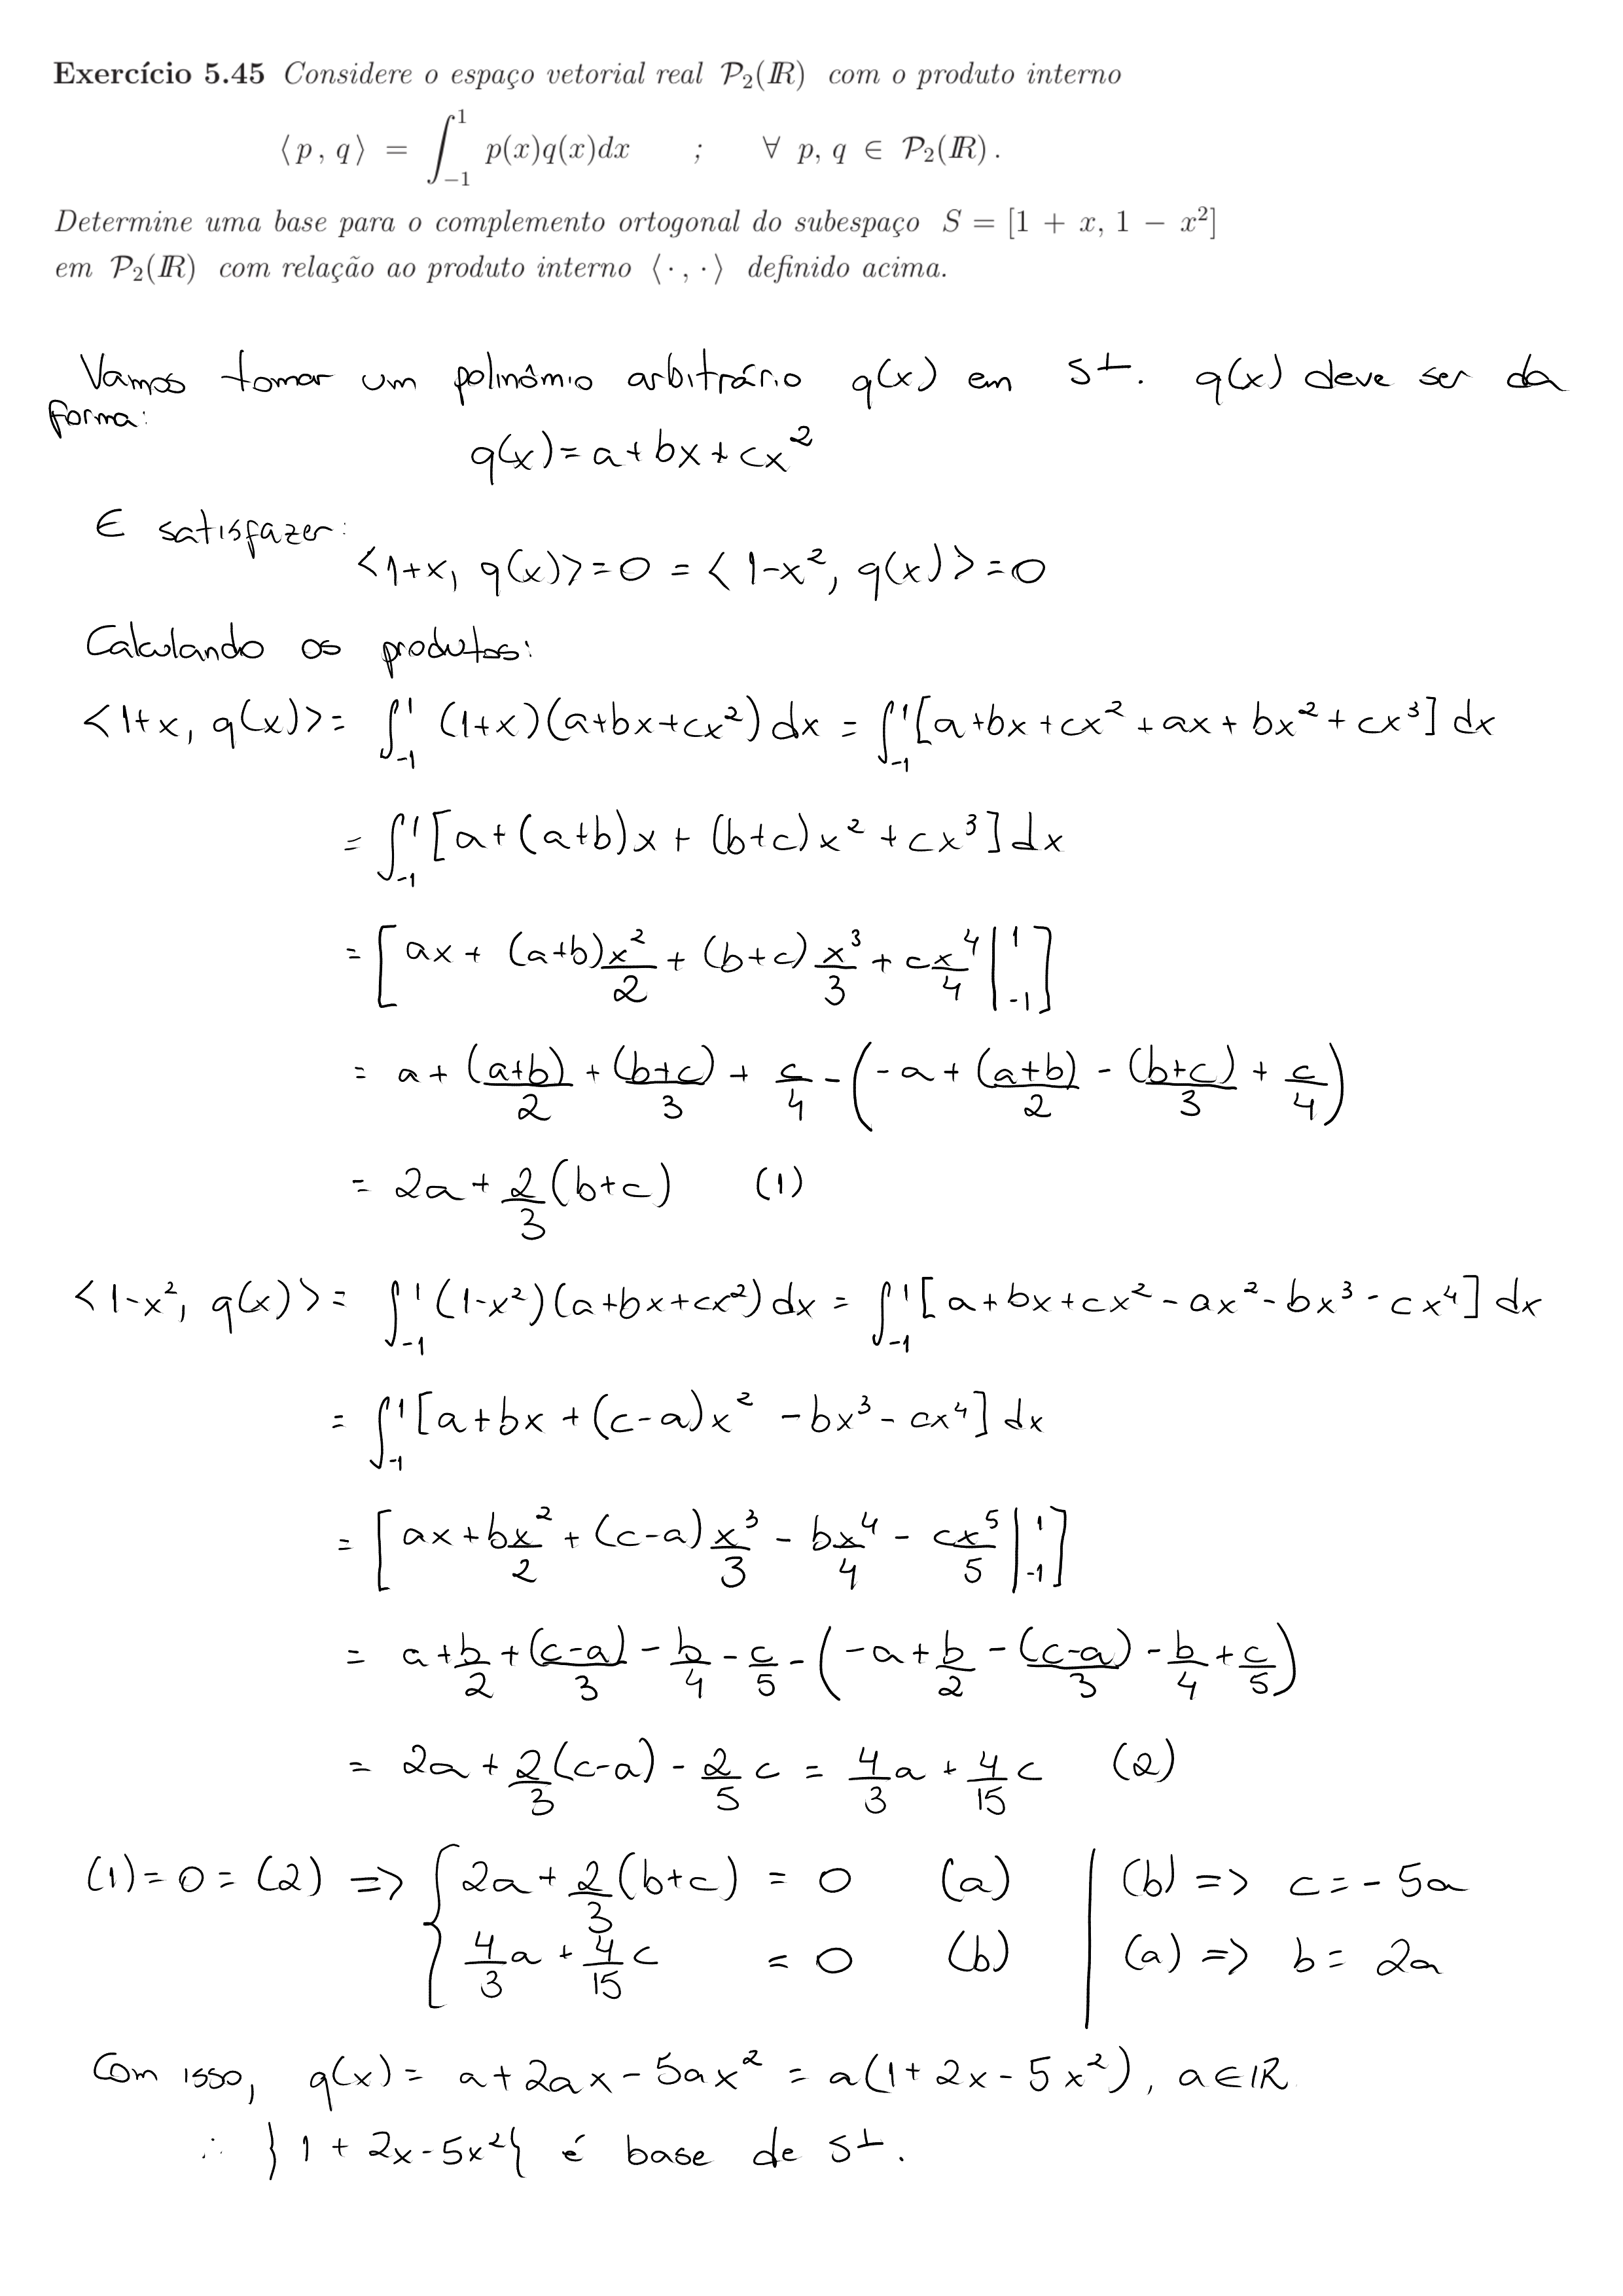 Exercício 5.45 Considere o espaço vetorial real P₂(ℝ) com o produto interno
⟨p, q⟩ = ∫₋₁¹ p(x)q(x)dx ; ∀ p, q ∈ P₂(ℝ).
Determine uma base para o complemento ortogonal do subespaço S = [1 + x, 1 − x²]
em P₂(ℝ) com relação ao produto interno ⟨·, ·⟩ definido acima.
Vamos tomar um polinômio arbitrário q(x) em S⊥. q(x) deve ser da
forma:
q(x) = a + bx + cx²
E satisfazer:
<1+x, q(x)> = 0 = <1-x², q(x)> = 0
Calculando os produtos:
<1+x, q(x)> = ∫₋₁¹ (1+x)(a+bx+cx²) dx = ∫₋₁¹ [a+bx+cx²+ax+bx²+cx³] dx
= ∫₋₁¹ [a+(a+b)x+(b+c)x²+cx³] dx
= [ax + (a+b)x²/2 + (b+c)x³/3 + cx⁴/4 |₋₁¹]
= a + (a+b)/2 + (b+c)/3 + c/4 - (-a + (a+b)/2 - (b+c)/3 + c/4)
= 2a + 2/3 (b+c) (1)
<1-x², q(x)> = ∫₋₁¹ (1-x²)(a+bx+cx²) dx = ∫₋₁¹ [a+bx+cx²-ax²-bx³-cx⁴] dx
= ∫₋₁¹ [a+bx+(c-a)x²-bx³-cx⁴] dx
= [ax + bx²/2 + (c-a)x³/3 - bx⁴/4 - cx⁵/5 |₋₁¹]
= a + b/2 + (c-a)/3 - b/4 - c/5 - (-a + b/2 - (c-a)/3 - b/4 + c/5)
= 2a + 2/3 (c-a) - 2/5 c = 4/3 a + 4/15 c (2)
(1) = 0 = (2) => { 2a + 2/3 (b+c) = 0 (a) | (b) => c = -5a
4/3 a + 4/15 c = 0 (b) | (a) => b = 2a
Com isso, q(x) = a + 2ax - 5ax² = a(1+2x-5x²), a ∈ ℝ
∴ {1 + 2x - 5x²} é base de S⊥.